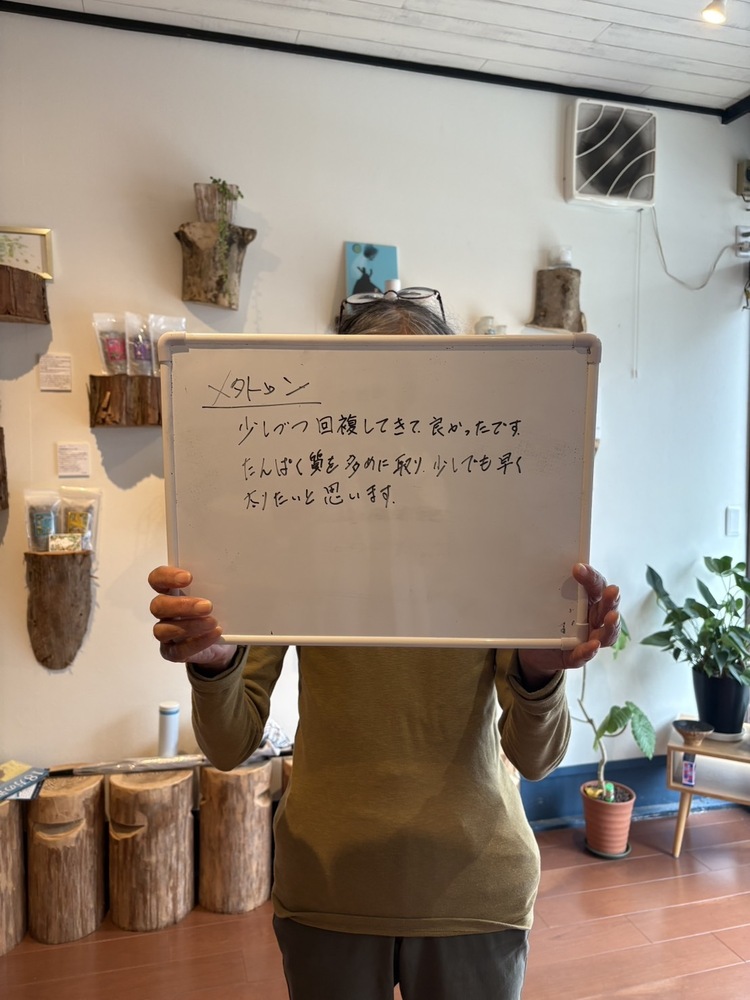 メタトロン
少しづつ回複してきて、良かったです。
たんぱく質を多めに取り、少しでも早く
太りたいと思います。